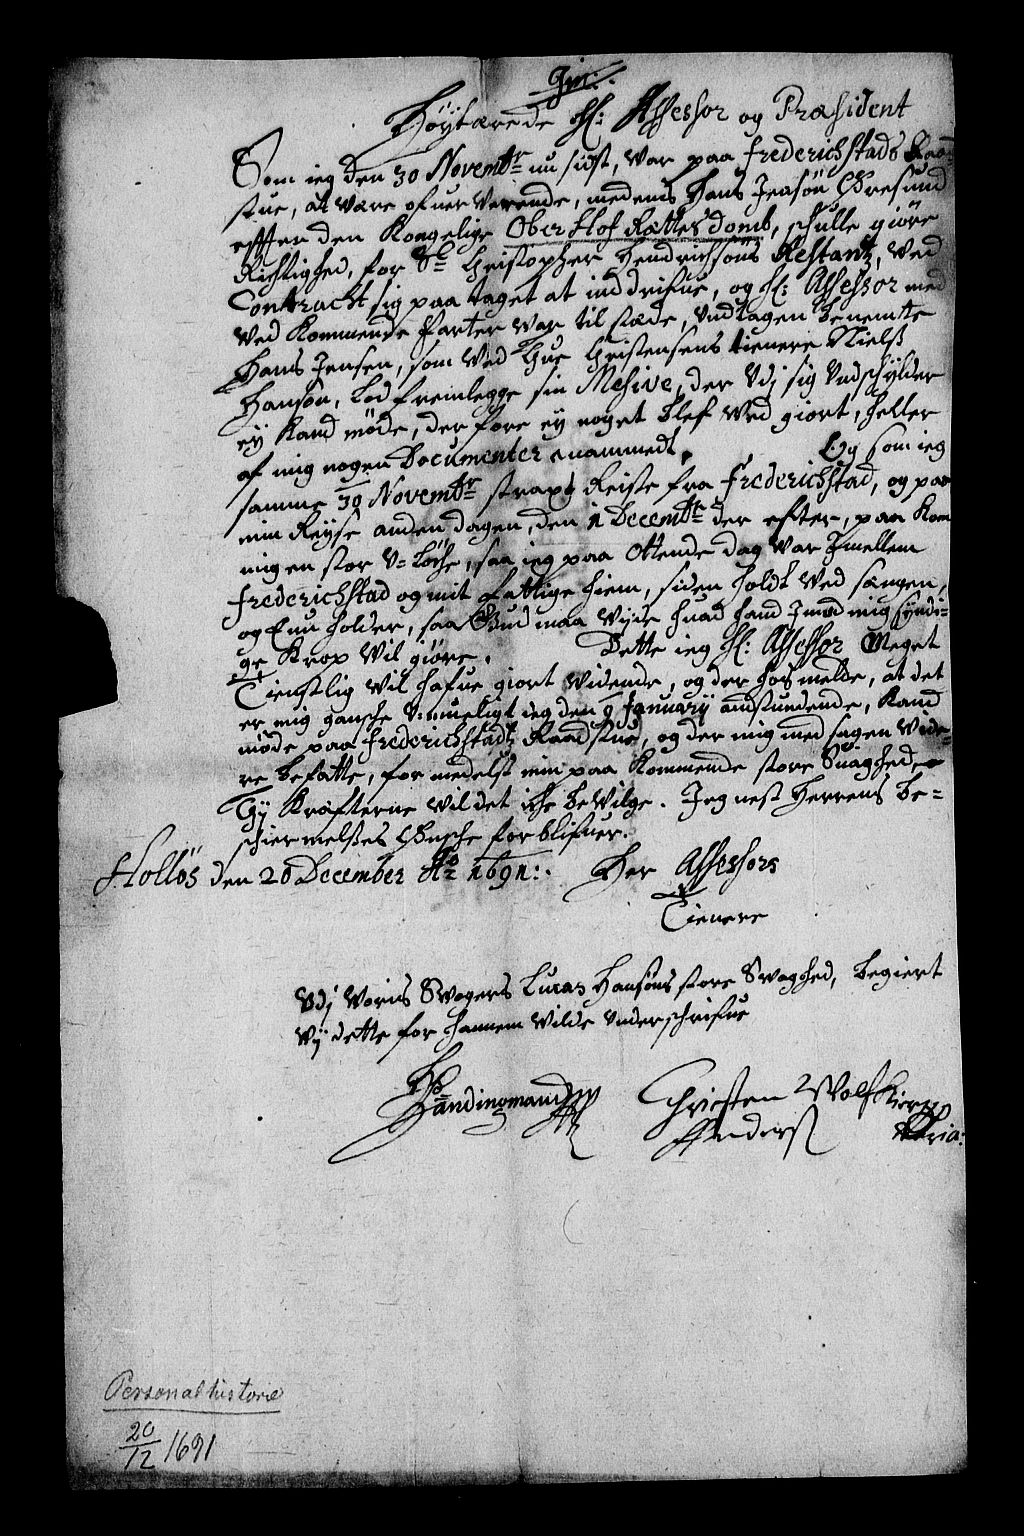 Høytærede H: Assessor og Præsident
Som ieg den 30 Novembr nu sidst, war paa Frederichstads Raad
stue, at være ofuer værende, medens Hans Jensøn Øresund
effter den Kongelige Ober Hof Rættes domb, schulle giøre
Rictighed, for Sr Christopher Hendrichsøns Restantz, wed
Contracht sig paa taget at inddrifue, og H: Assessor med
wed Kommende Parter war til stæde, undtagen benemte
Hans Jensen, som wed Christensens tienere Nielss
Hansøn, lod fremlegge sin Mesive, der udj sig undschylder
ey Kand møde, der fore ey noget blef wed giort, heller
af mig nogen Documenter anammedt. Og som ieg
samme 30 Novembr strax Reiste fra Frederichstad, og paa
min Reyse anden dagen, den 1 Decembr der efter, paa Kom
mig en stor U-løche, saa ieg paa Ottende dag war Jmellem
Frederichstad og mit fattige hiem, siden holdt wed sængen,
og Enu holder, saa Gud maa wide huad hand Jmod mig syndi-
ge Krop wil giøre. Dette ieg H: Assessor Meget
Tienstlig wil hafue giort widende, og der hos melde, at det
er mig gansche U-mueligt ieg den 9 January anstundende, Kand
møde paa Frederichstadz Raadstue, og der mig med sagen wide-
re befatte, formedelst min paa Kommende store Suaghed,
Thj Kræfterne wil det iche bewilge. Jeg nest Herrens be-
schiermelsses Ønsche forblifuer.
Holløs den 20 December Ao 1691:. Her Assessors
Tienere
Udj Woris Swogers Lucas Hansøns store Swaghed, begiert
wj dette for hannem wilde underschrifue
Christen Wolf
Anderss
Personalhistorie
20/12 1691